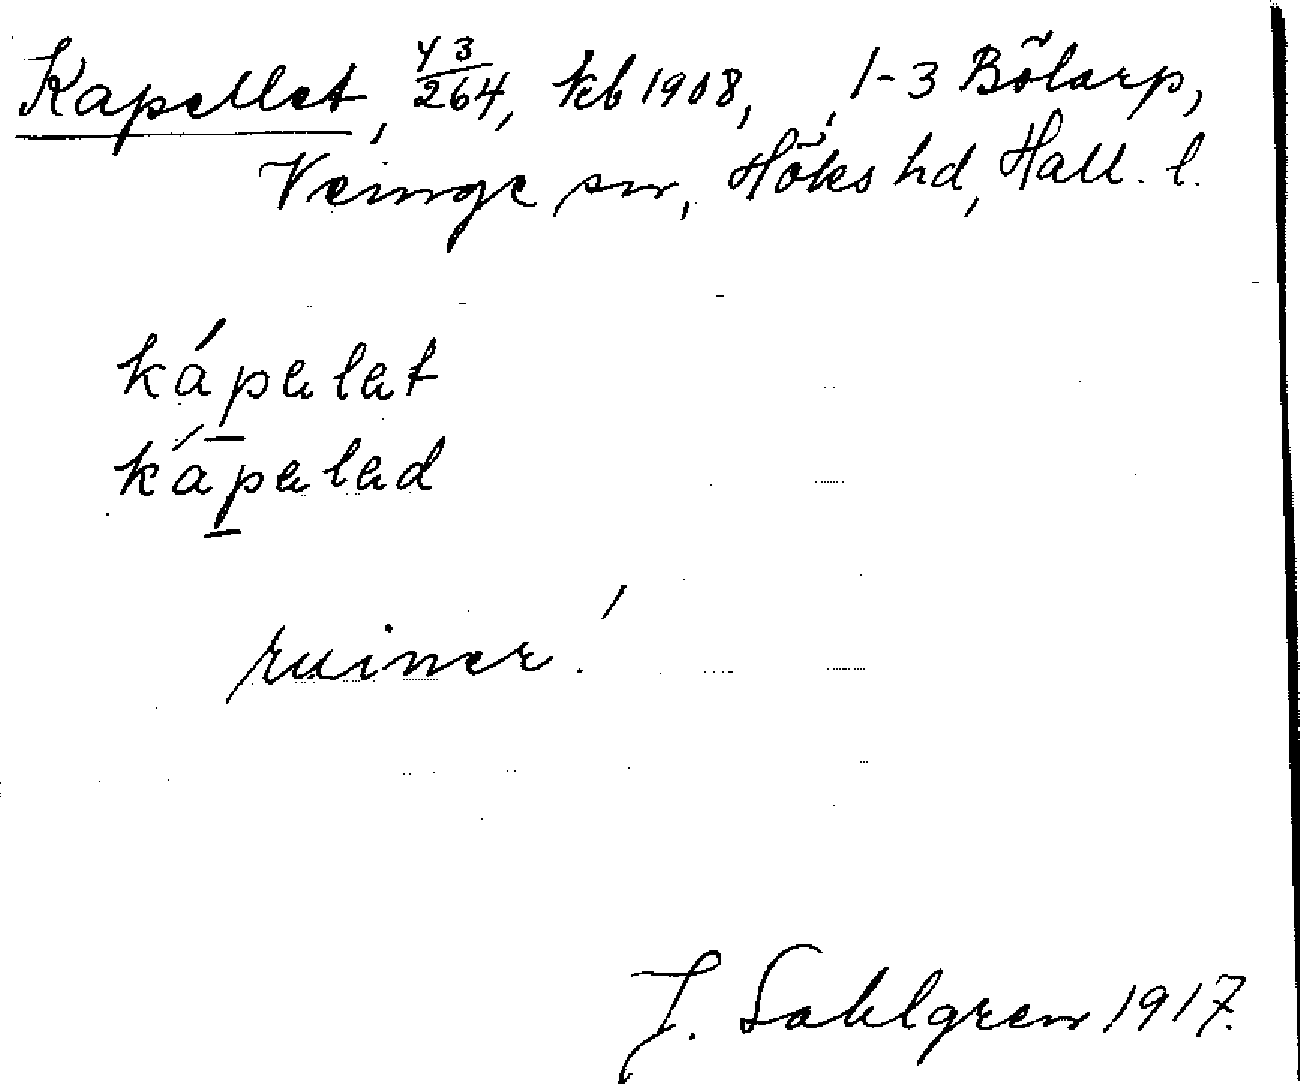 Kapellet, 43/264, kb 1908, , 1-3 Bölarp,
Veinge sn, Höks hd, Hall. l.
kápelet
kápeled
ruiner!
J. Sahlgren 1917.